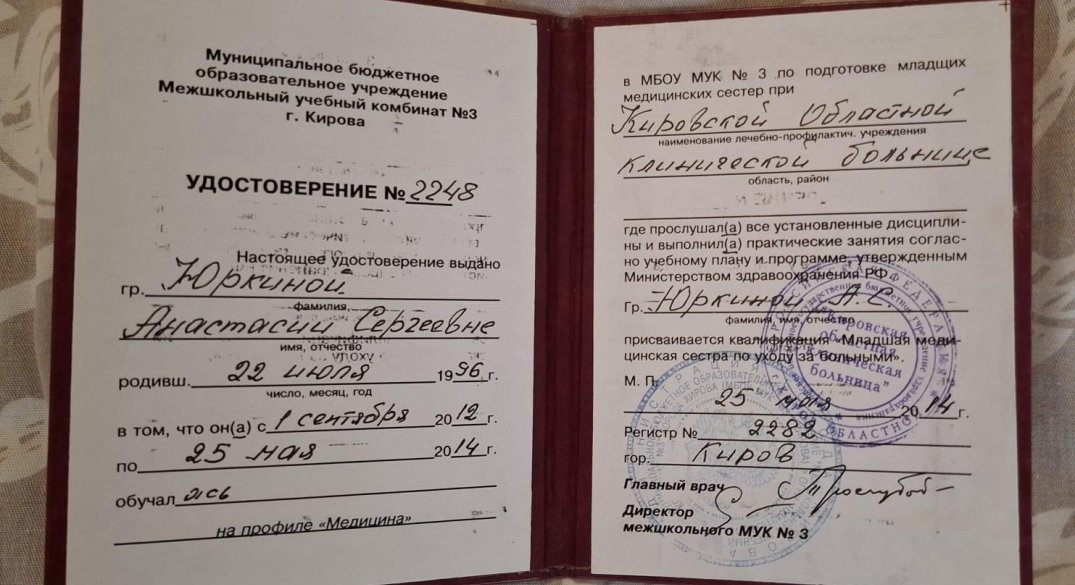 Муниципальное бюджетное
образовательное учреждение
Межшкольный учебный комбинат №3
г. Кирова
УДОСТОВЕРЕНИЕ № 2248
Настоящее удостоверение выдано
гр. Юркиной
фамилия,
Анастасии Сергеевне
имя, отчество
родивш. 22 июля 1996 г.
число, месяц, год
в том, что он(а) с 1 сентября 2012 г.
по 25 мая 2014 г.
обучал ась
на профиле «Медицина»
в МБОУ МУК № 3 по подготовке младщих
медицинских сестер при
Кировской Областной
наименование лечебно-профилактич. учреждения
клинической больнице
область, район
где прослушал(а) все установленные дисципли-
ны и выполнил(а) практические занятия соглас-
но учебному плану и программе, утвержденным
Министерством здравоохранения РФ
Гр. Юркиной А.С
фамилия, имя, отчество
присваивается квалификация «Младшая меди-
цинская сестра по уходу за больными».
М. П.
25 мая 2014 г.
Регистр № 2282
гор. Киров
Главный врач
Директор
межшкольного МУК № 3
РОССИЙСКАЯ ФЕДЕРАЦИЯ
"Кировская
областная
клиническая
больница"